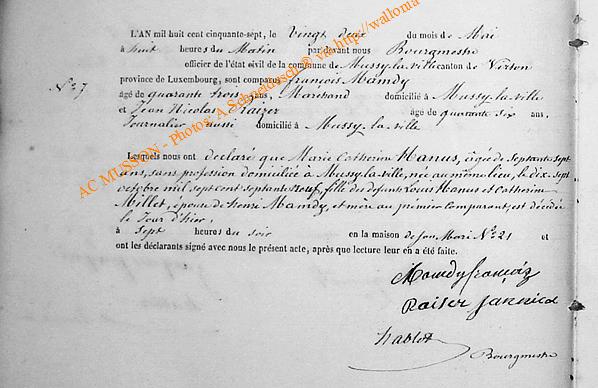 L'AN mil huit cent cinquante-sept, le Vingt deux du mois de Mai
à huit heures du Matin par devant nous Bourgmestre
officier de l'état civil de la commune de Mussy-la-ville canton de Virton
N° 7 province de Luxembourg, sont comparus françois Mamdy
âgé de quarante trois ans, Marchand domicilié à Mussy-la-ville
et Jean Nicolas Raizer âgé de quarante six ans,
Journalier aussi domicilié à Mussy-la-ville
Lesquels nous ont déclaré que Marie Catherine Hanus, âgée de Septante sept
ans, sans profession domiciliée à Mussy-la-ville, née au même lieu, le dix sept
octobre mil sept cent septante neuf, fille des defunts Louis Hanus et Catherine
Millet, épouse de henri Mamdy, et mère au prémier Comparant, est décédée
le Jour d'hier,
à Sept heures du soir en la maison de Son Mari N° 21 et
ont les déclarants signé avec nous le présent acte, après que lecture leur en a été faite.
Mamdy françois
Raiser
hablot
Bourgmestre
AC MUSSON - Photos: A.Schneidesch @ via http://walloma